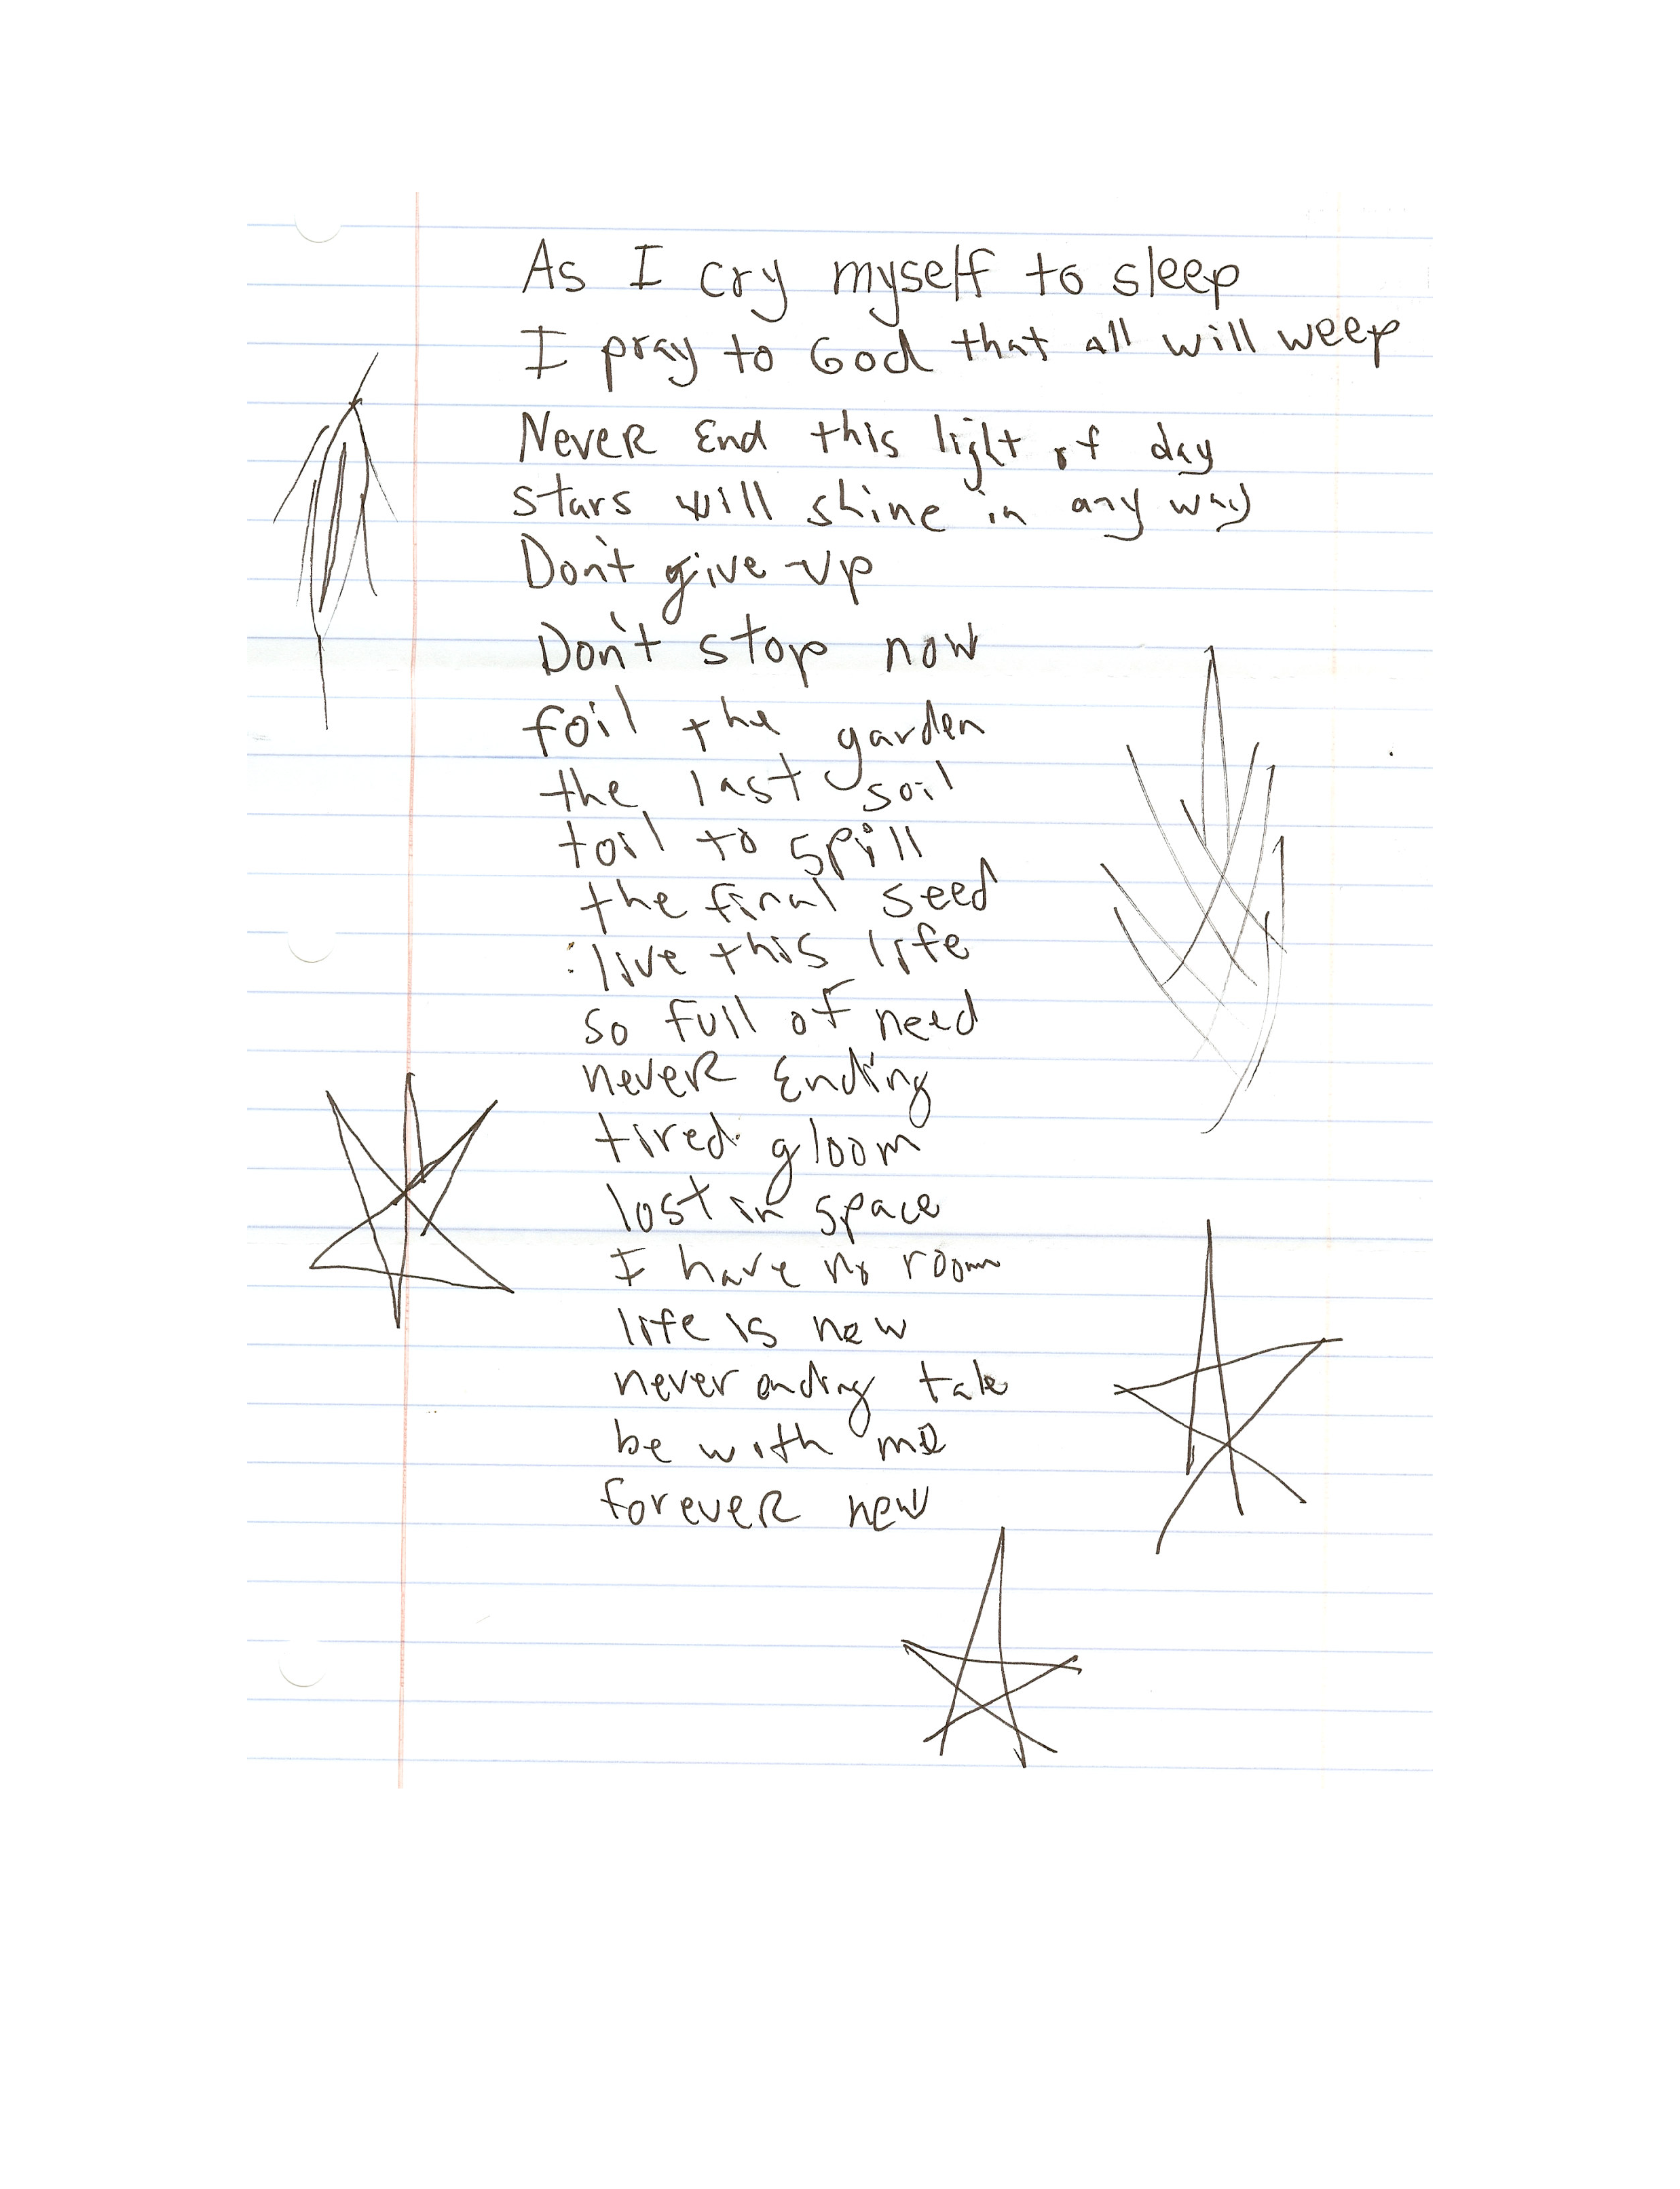 As I cry myself to sleep
I pray to God that all will weep
Never End this light of day
stars will shine in any way
Don't give up
Don't stop now
foil the garden
the last soil
toil to spill
the final seed
live this life
so full of need
never Ending
tired gloom
lost in space
I have no room
life is new
never ending tale
be with me
forever new